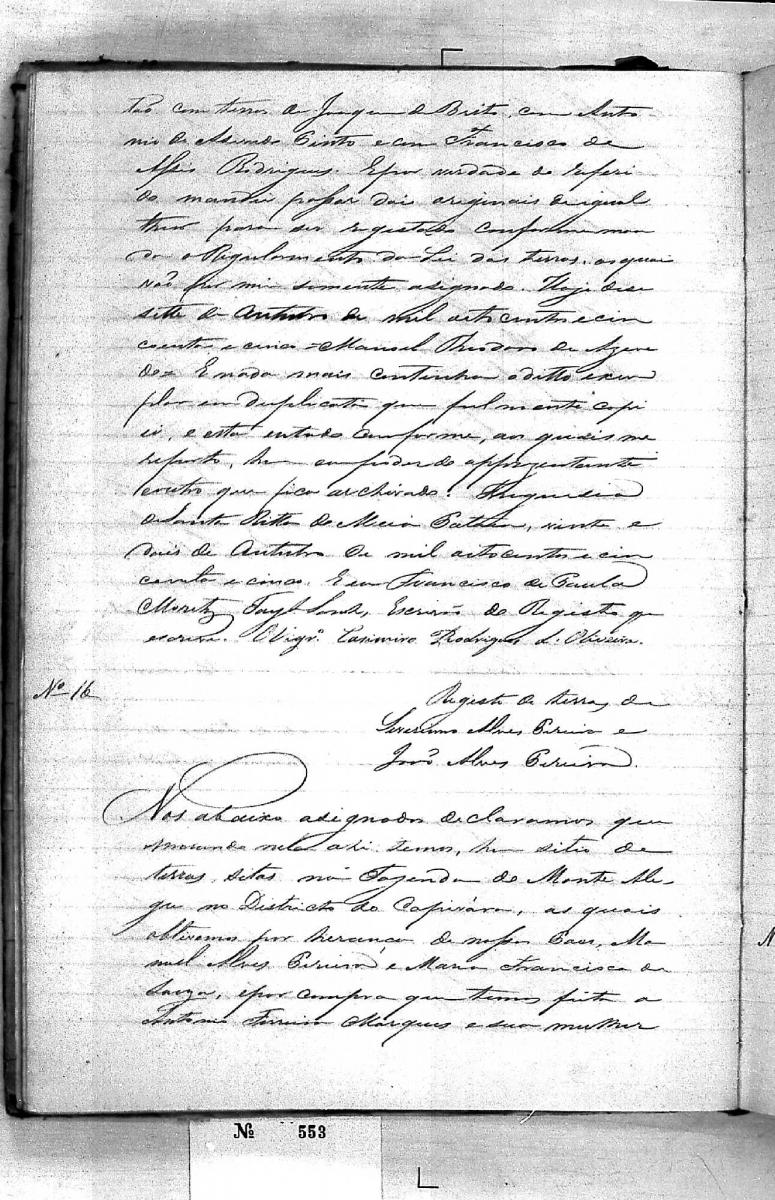 tão com terras de Joaquim de Brito, com Anto
nio de Azevedo Pinto e com Francisco de
Assis Rodrigues. E por verdade do referi
do mandei passar dois originais de igual
theor para ser registado conforme man
da o Regulamento da Lei das terras, as quais
vão por mim somente asignado. Hoje deze
sette de Outubro de mil oito centos e cin
coenta e cinco = Manoel Theodoro de Azeve
do = E nada mais continha o ditto exem
plar em duplicata que fielmente copi
ei, e esta em tudo conforme, aos quais me
reporto, hum em poder do apprezentante
e outro que fica archivado. Freguesia
de Santa Ritta do Meia Pataca, vinte e
dois de Outubro de mil oito centos e cin
coenta e cinco. E eu Francisco de Paula
Moritz Escrivão do Registo que
escrevi. O Vigr.o Casimiro Rodrigues d'Oliveira.
Nº 16
Registo de terras de
Severiano Alves Pereira e
João Alves Pereira.
Nos abaixo asignados declaramos que
morando nelle ahi temos, hum sitio de
terras, sitas na Fazenda do Monte Ale-
gre no Districto do Capivára, as quais
obtivemos por herança de nossos Paes, Ma
noel Alves Pereira e Maria Francisca de
Souza, e por compra que temos feito a
Antonio Ferreira Marques e sua mulher
Nº 553
N